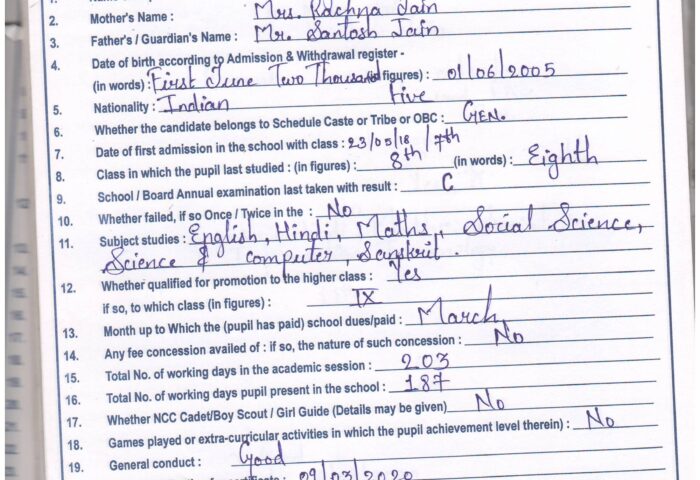 2. Mother's Name : Mrs. Rachna Jain
3. Father's / Guardian's Name : Mr. Santosh Jain
4. Date of birth according to Admission & Withdrawal register -
(in words) : First June Two Thousand (in figures) : 01/06/2005
Five
5. Nationality : Indian
6. Whether the candidate belongs to Schedule Caste or Tribe or OBC : GEN.
7. Date of first admission in the school with class : 23/05/18 / 7th
8. Class in which the pupil last studied : (in figures) : 8th (in words) : Eighth
9. School / Board Annual examination last taken with result : C
10. Whether failed, if so Once / Twice in the : No
11. Subject studies : English, Hindi, Maths, Social Science,
Science & computer, Sanskrit.
12. Whether qualified for promotion to the higher class : Yes
if so, to which class (in figures) : IX
13. Month up to Which the (pupil has paid) school dues/paid : March
14. Any fee concession availed of : if so, the nature of such concession : No
15. Total No. of working days in the academic session : 203
16. Total No. of working days pupil present in the school : 187
17. Whether NCC Cadet/Boy Scout / Girl Guide (Details may be given) No
18. Games played or extra-curricular activities in which the pupil achievement level therein) : No
19. General conduct : Good
09/03/2020